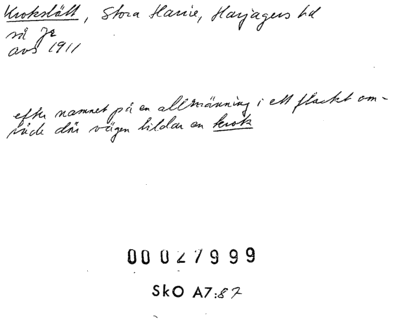 Krokslätt, Stora Harrie, Harjagers hd
så Je
avs 1911
efter namnet på en allmänning i ett flackt om-
råde där vägen bildar en krok
00027999
SkO A7:87